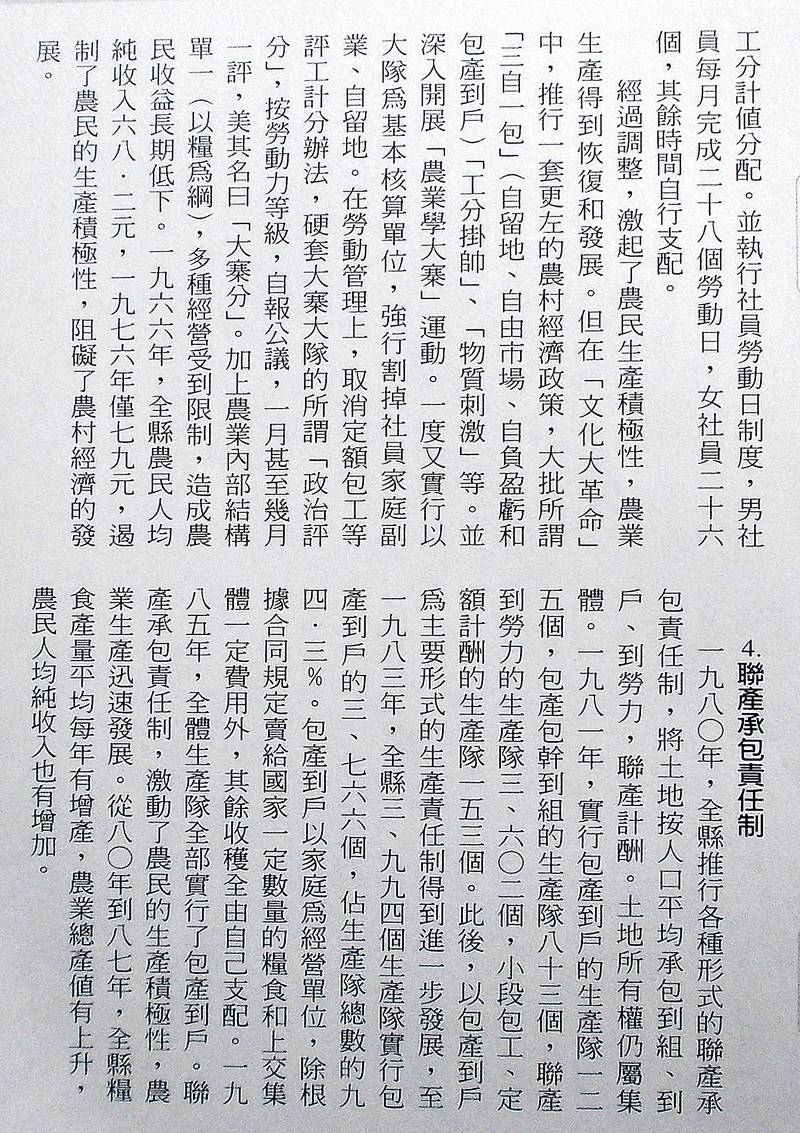 工分計值分配。並執行社員勞動日制度，男社
員每月完成二十八個勞動日，女社員二十六
個，其餘時間自行支配。
經過調整，激起了農民生產積極性，農業
生產得到恢復和發展。但在「文化大革命」
中，推行一套更左的農村經濟政策，大批所謂
「三自一包」（自留地、自由市場、自負盈虧和
包產到戶）「工分掛帥」、「物質刺激」等。並
深入開展「農業學大寨」運動。一度又實行以
大隊爲基本核算單位，強行割掉社員家庭副
業、自留地。在勞動管理上，取消定額包工等
評工計分辦法，硬套大寨大隊的所謂「政治評
分」，按勞動力等級，自報公議，一月甚至幾月
一評，美其名曰「大寨分」。加上農業內部結構
單一（以糧爲綱），多種經營受到限制，造成農
民收益長期低下。一九六六年，全縣農民人均
純收入六八·二元，一九七六年僅七九元，遏
制了農民的生產積極性，阻礙了農村經濟的發
展。
4.聯產承包責任制
一九八〇年，全縣推行各種形式的聯產承
包責任制，將土地按人口平均承包到組、到
戶、到勞力，聯產計酬。土地所有權仍屬集
體。一九八一年，實行包產到戶的生產隊一二
五個，包產包幹到組的生產隊八十三個，聯產
到勞力的生產隊三、六〇二個，小段包工、定
額計酬的生產隊一五三個。此後，以包產到戶
爲主要形式的生產責任制得到進一步發展，至
一九八三年，全縣三、九九四個生產隊實行包
產到戶的三、七六六個，佔生產隊總數的九
四·三％。包產到戶以家庭爲經營單位，除根
據合同規定賣給國家一定數量的糧食和上交集
體一定費用外，其餘收穫全由自己支配。一九
八五年，全體生產隊全部實行了包產到戶。聯
產承包責任制，激動了農民的生產積極性，農
業生產迅速發展。從八〇年到八七年，全縣糧
食產量平均每年有增產，農業總產值有上升，
農民人均純收入也有增加。